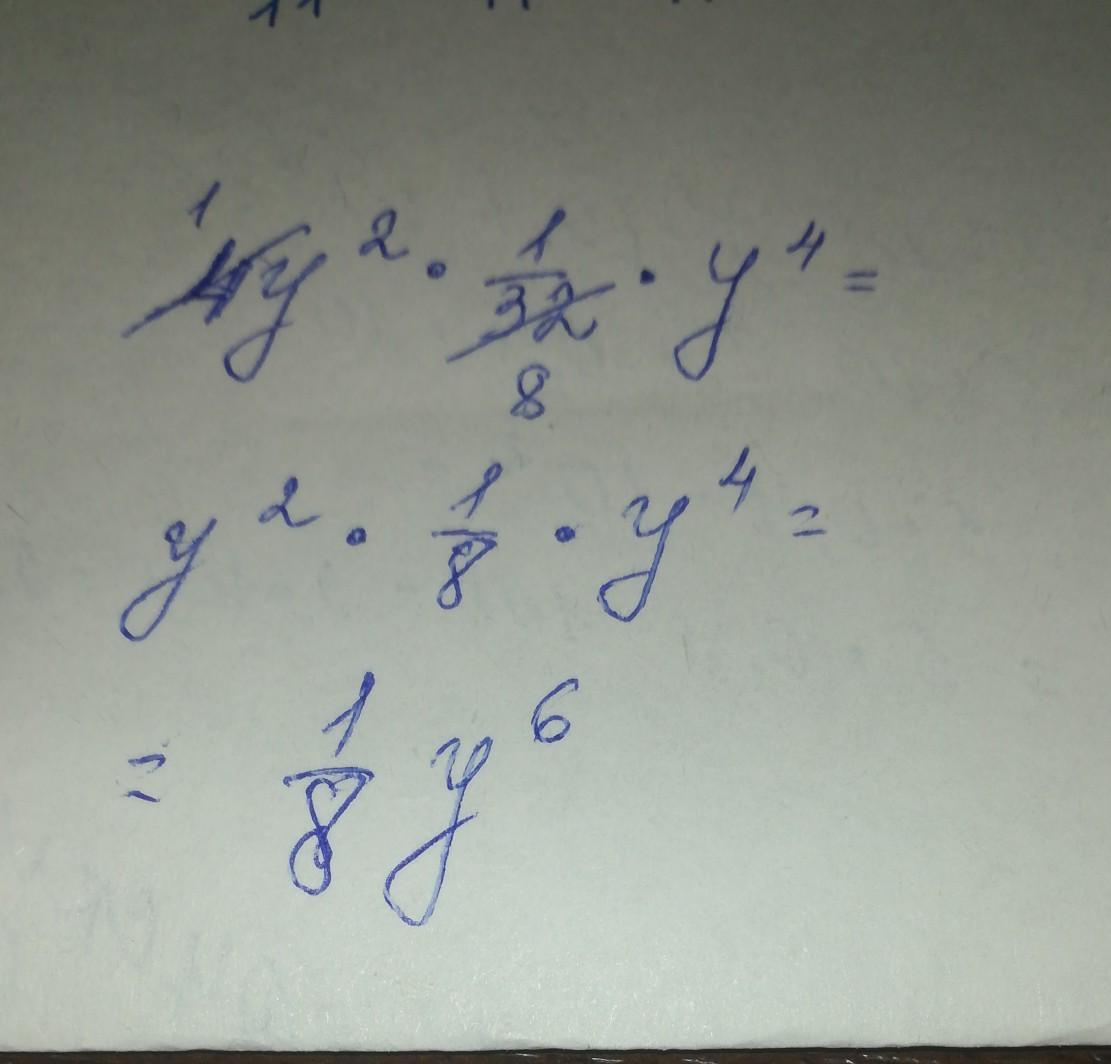 1
4y² · 1/32 · y⁴ =
8
y² · 1/8 · y⁴ =
= 1/8 y⁶